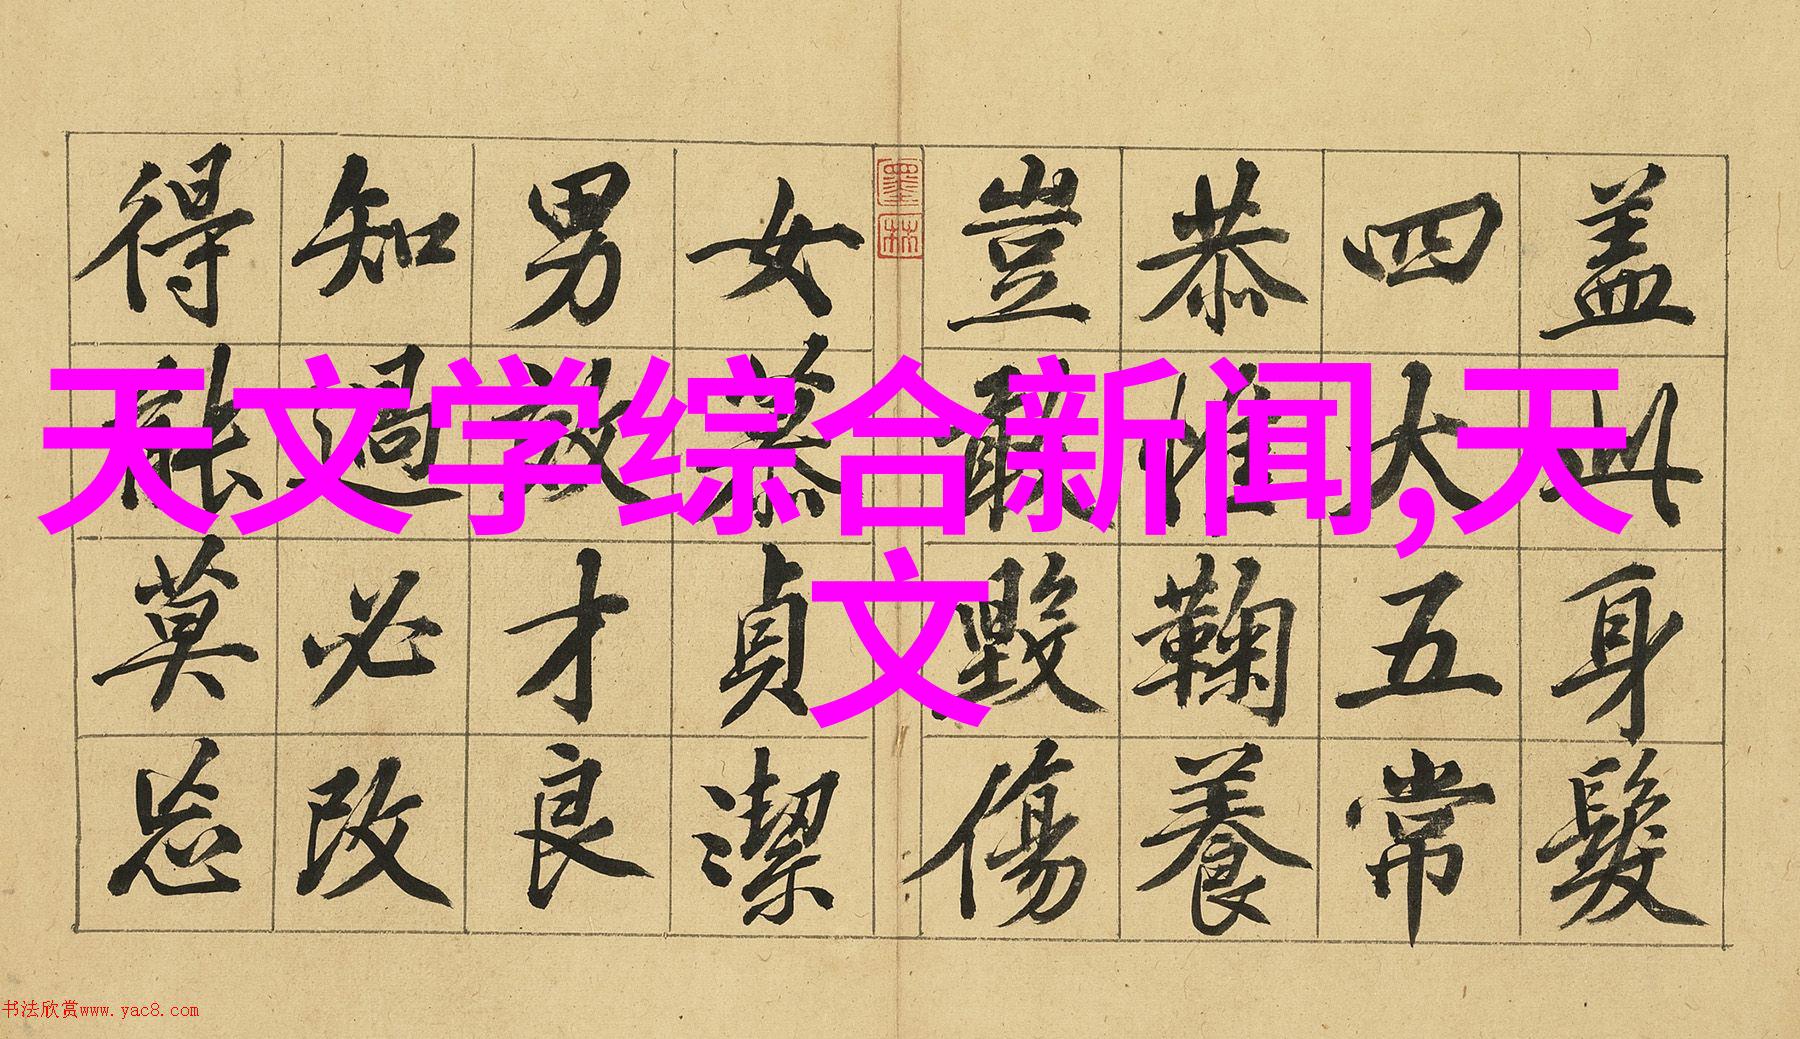 天文学综合新闻,天
文
盖此身髮
四大五常
恭惟鞠養
豈敢毀傷
墨林
女慕貞潔
男效才良
知過必改
得能莫忘
书法欣赏www.yac8.com